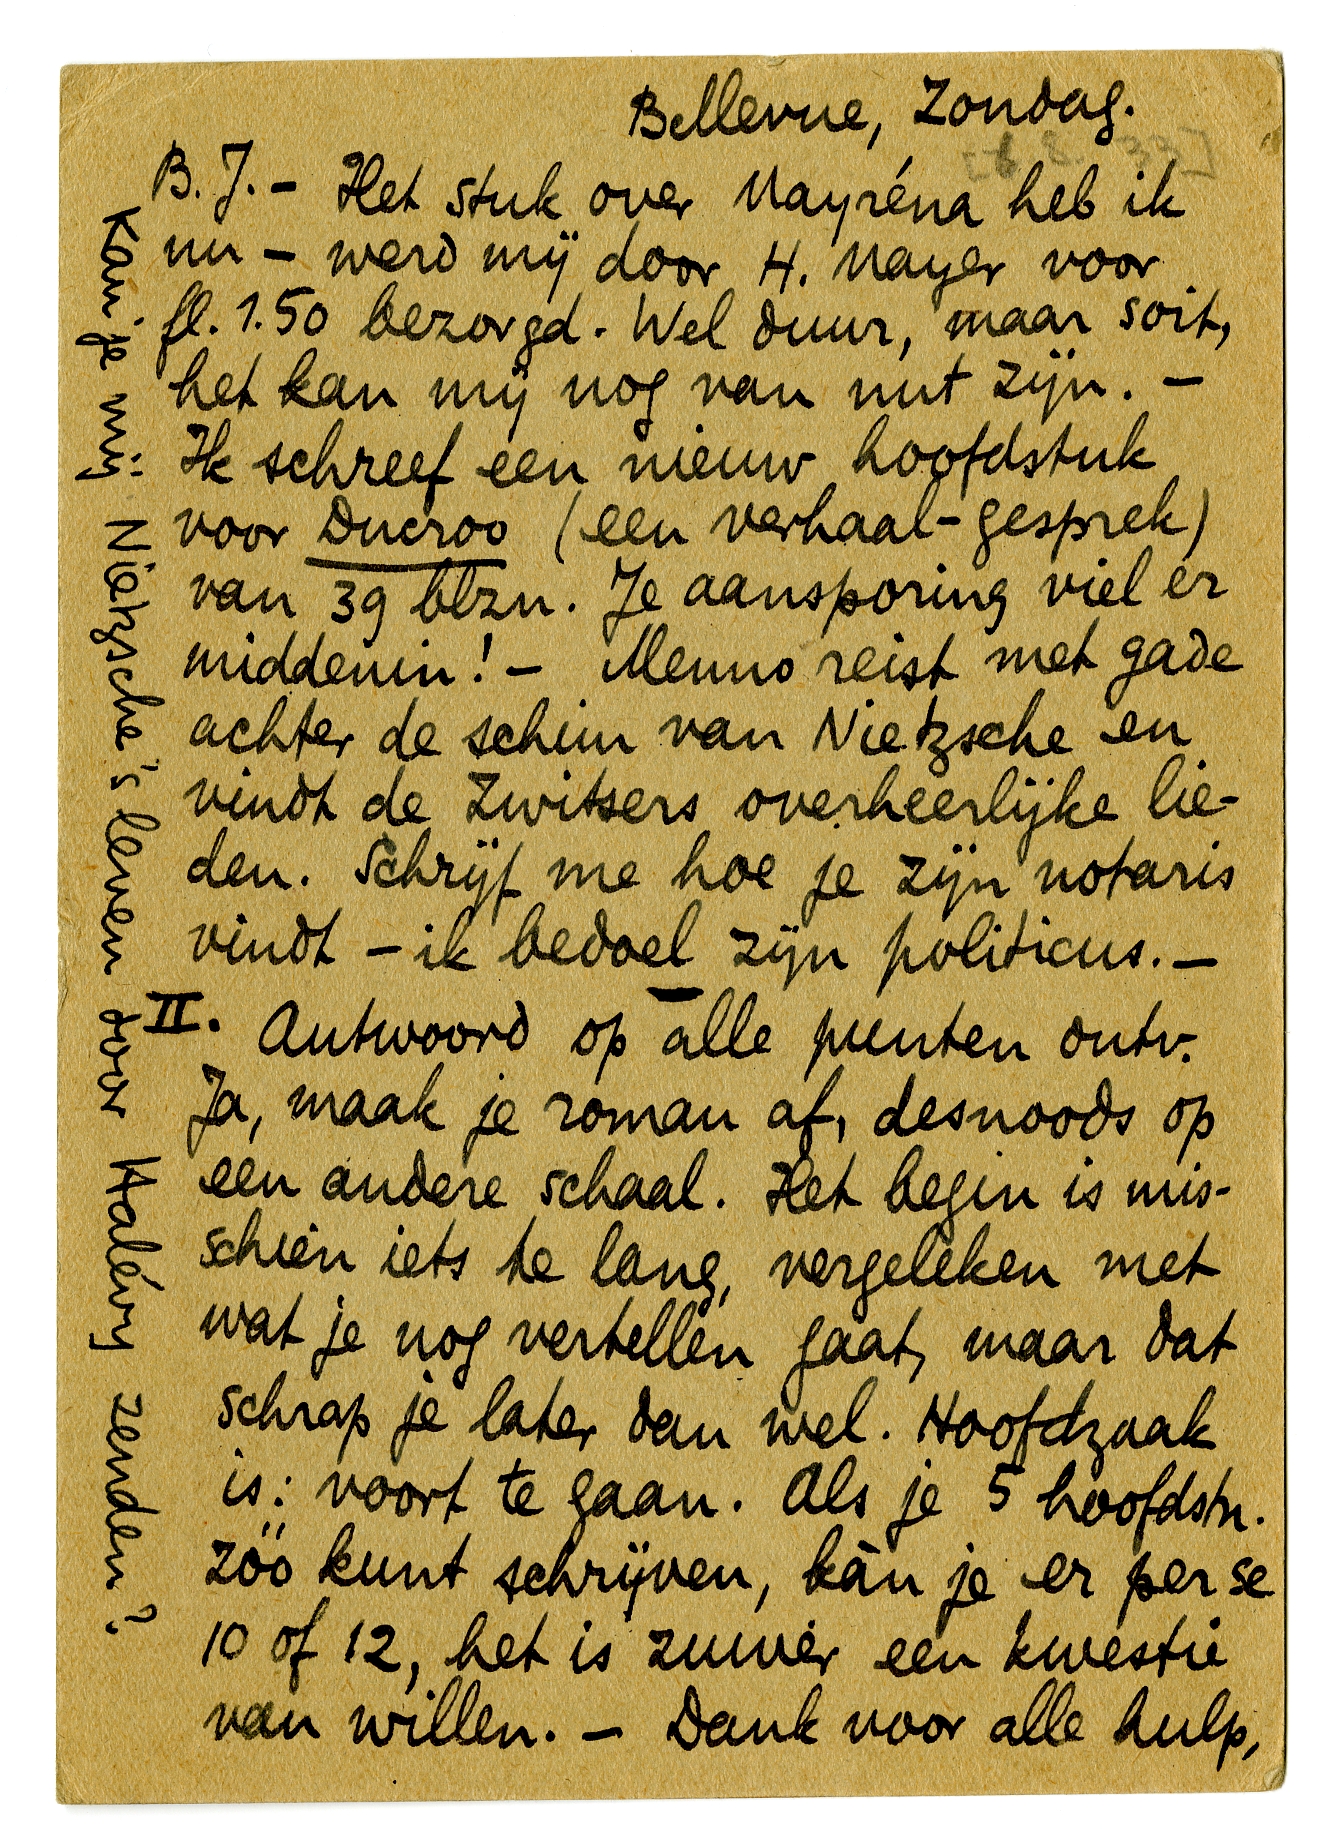 Bellevue, Zondag.
B. J. – Het stuk over Mayréna heb ik
nu – werd mij door H. Mayer voor
fl. 1.50 bezorgd. Wel duur, maar soit,
het kan mij nog van nut zijn. –
Ik schreef een nieuw hoofdstuk
voor Ducroo (een verhaal-gesprek)
van 39 blzn. Je aansporing viel er
middenin! – Menno reist met gade
achter de schim van Nietzsche en
vindt de Zwitsers overheerlijke lie-
den. Schrijf me hoe je zijn notaris
vindt – ik bedoel zijn politicus. –
II. Antwoord op alle punten ontv.
Ja, maak je roman af, desnoods op
een andere schaal. Het begin is mis-
schien iets te lang, vergeleken met
wat je nog vertellen gaat, maar dat
schrap je later dan wel. Hoofdzaak
is: voort te gaan. Als je 5 hoofdstn.
zóó kunt schrijven, kàn je er per se
10 of 12, het is zuiver een kwestie
van willen. – Dank voor alle hulp,
Kan je mij Nietzsche's leven door Halévy zenden?